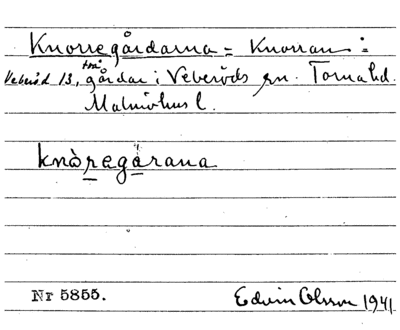 Knorregårdarna = Knorran:
två
Veberöd 13, gårdar i Veberöds sn. Torna hd.
Malmöhus l.
knòregárana
Nr 5855. Edvin Olsson 1941